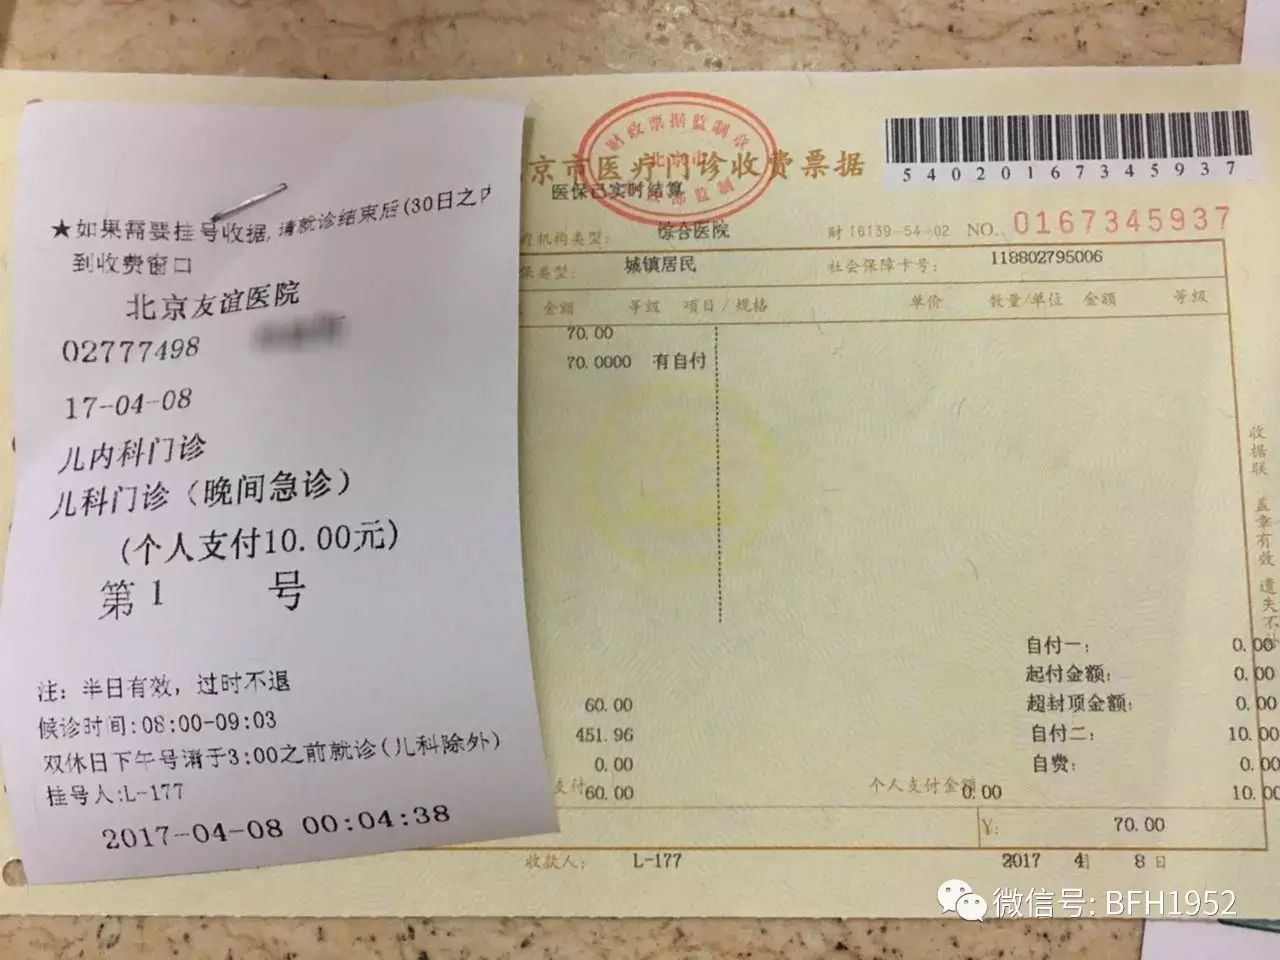 ★如果需要挂号收据,请就诊结束后(30日之内
到收费窗口
北京友谊医院
02777498
17-04-08
儿内科门诊
儿科门诊（晚间急诊）
(个人支付10.00元)
第1 号
注：半日有效，过时不退
候诊时间:08:00-09:03
双休日下午号请于3:00之前就诊(儿科除外)
挂号人:L-177
2017-04-08 00:04:38
京市医疗门诊收费票据
财政票据监制章
北京市
财政部监制
医保已实时结算
540201673459​37
机构类型： 综合医院 财 16139-54-02 NO. 0167345937
保类型： 城镇居民 社会保障卡号： 118802795006
金额 等级 项目/规格 单价 数量/单位 金额 等级
70.00
70.0000 有自付
收据联 盖章有效 遗失不
自付一： 0.00
起付金额： 0.00
60.00 超封顶金额： 0.00
451.96 自付二： 10.00
0.00 自费： 0.00
支付 60.00 个人支付金额 0.00 10.00
¥： 70.00
收款人： L-177 2017 4月 8日
微信号: BFH1952